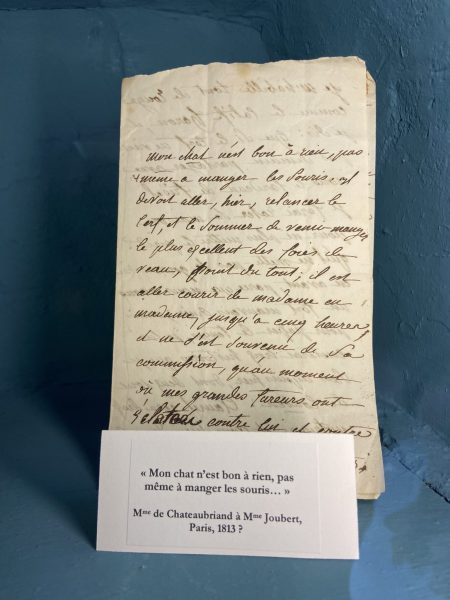 mon chat n'est bon à rien, pas
même a manger les souris. il
devoit aller, hier, relancer le
Cerf, et le sommer de venir manger
le plus excellent des foies de
veau, point du tout; il est
aller courir de madame en
madame, jusqu'a cinq heures,
et ne s'est souvenu de sa
commission, qu'au moment
où mes grandes fureurs ont
éclatées contre lui et contre
« Mon chat n'est bon à rien, pas
même à manger les souris… »
Mme de Chateaubriand à Mme Joubert,
Paris, 1813 ?